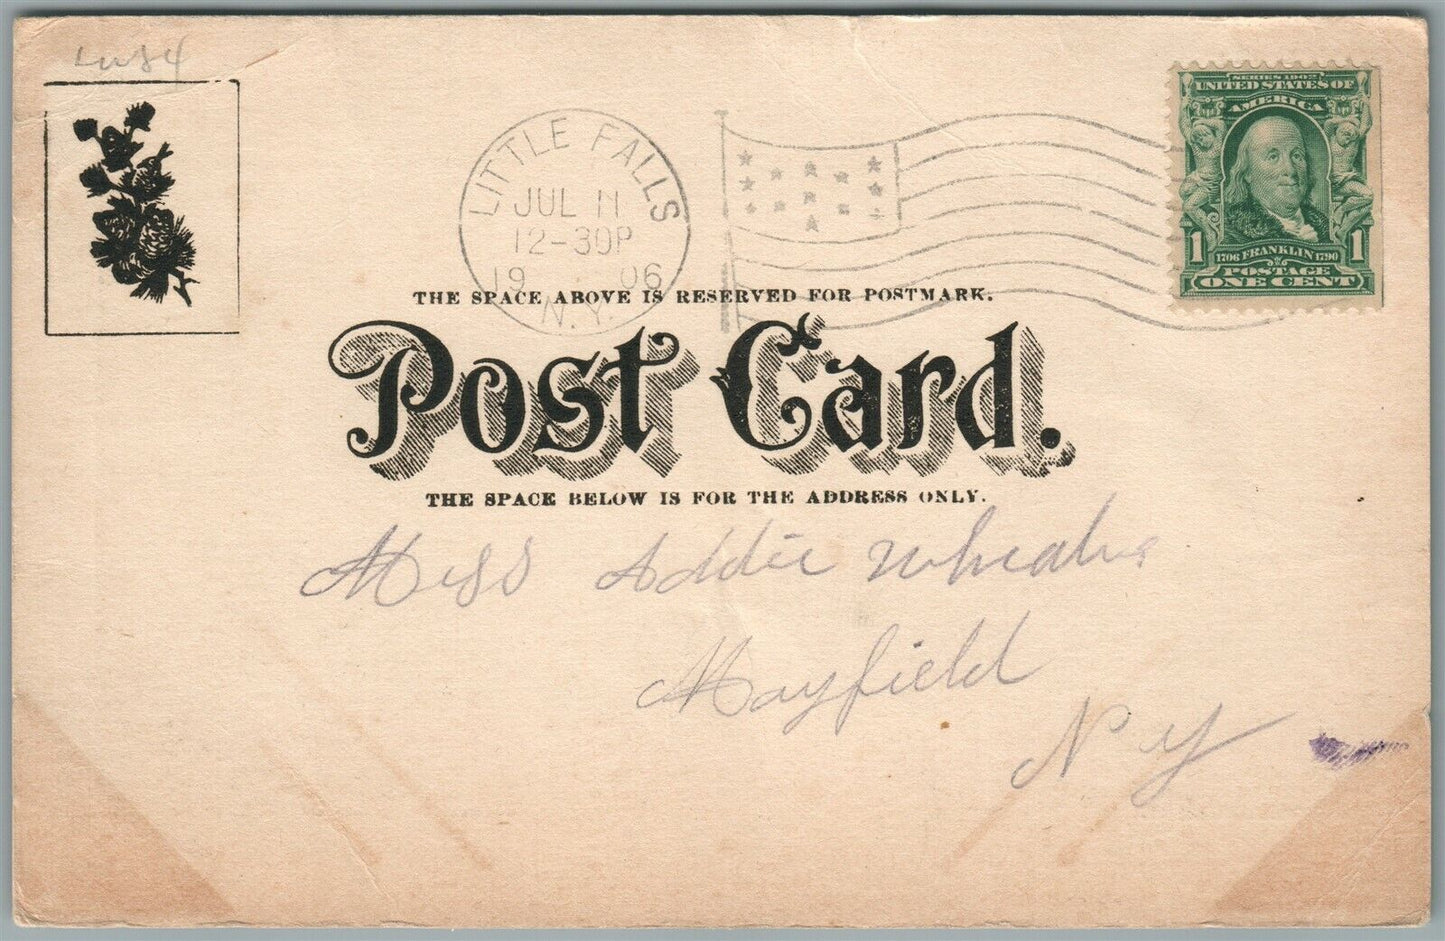 LITTLE FALLS
JUL 11
12-30P
1906
N.Y.
SERIES 1902
UNITED STATES OF
AMERICA
1 1706 FRANKLIN 1790 1
POSTAGE
ONE CENT
THE SPACE ABOVE IS RESERVED FOR POSTMARK.
Post Card.
THE SPACE BELOW IS FOR THE ADDRESS ONLY.
Miss Addie
Mayfield
N Y